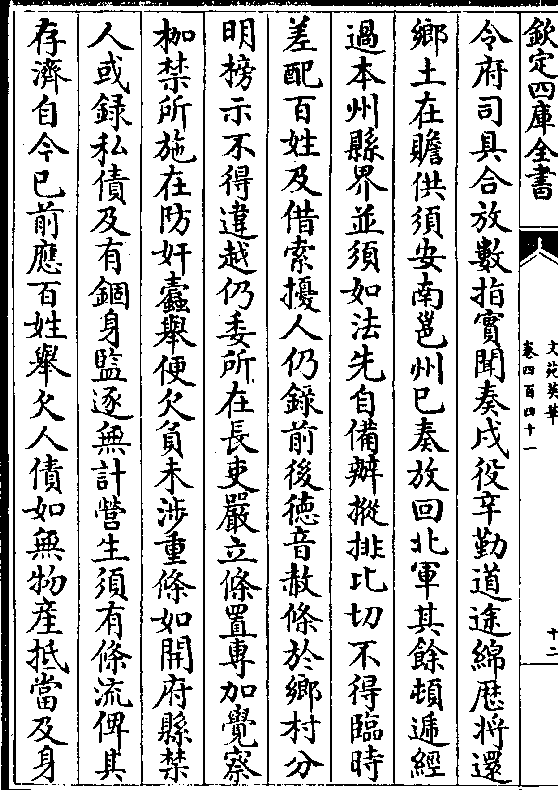 欽定四庫全書
文苑英華
卷四百四十一
十二
令府司具合放數指實聞奏戍役辛勤道途綿歴将還
鄉土在贍供須安南邕州已奏放回北軍其餘頓遞經
過本州縣界並須如法先自備辦摐排比切不得臨時
差配百姓及借索擾人仍錄前後徳音赦條於鄉村分
明榜示不得違越仍委所在長吏嚴立條置專加覺察
枷禁所施在防奸蠧舉便欠負未涉重條如聞府縣禁
人或録私債及有錮身監逐無計營生須有條流俾其
存濟自今已前應百姓舉欠人債如無物産抵當及身